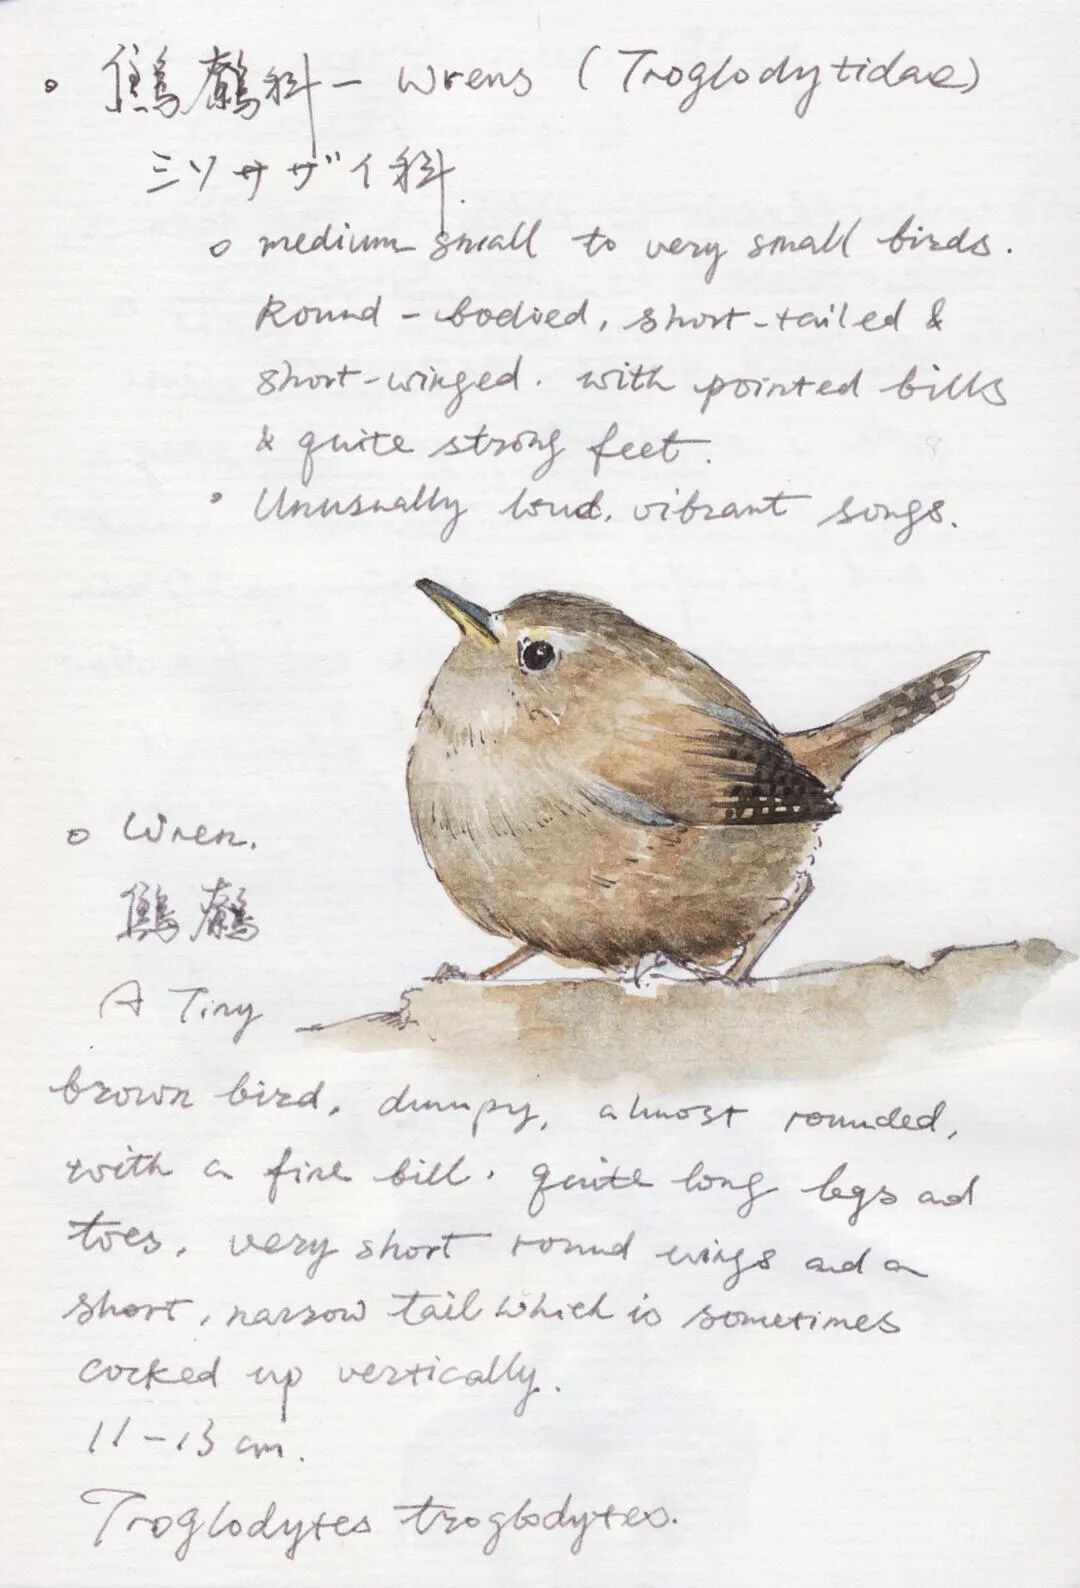 鷦鷯科 - Wrens (Troglodytidae)
ミソサザイ科.
medium small to very small birds.
Round-bodied, short-tailed &
short-winged. with pointed bills
& quite strong feet.
Unusually loud, vibrant songs.
Wren.
鷦鷯
A Tiny
brown bird, dumpy, almost rounded,
with a fine bill. quite long legs and
toes, very short round wings and a
short, narrow tail which is sometimes
cocked up vertically.
11-13 cm.
Troglodytes troglodytes.